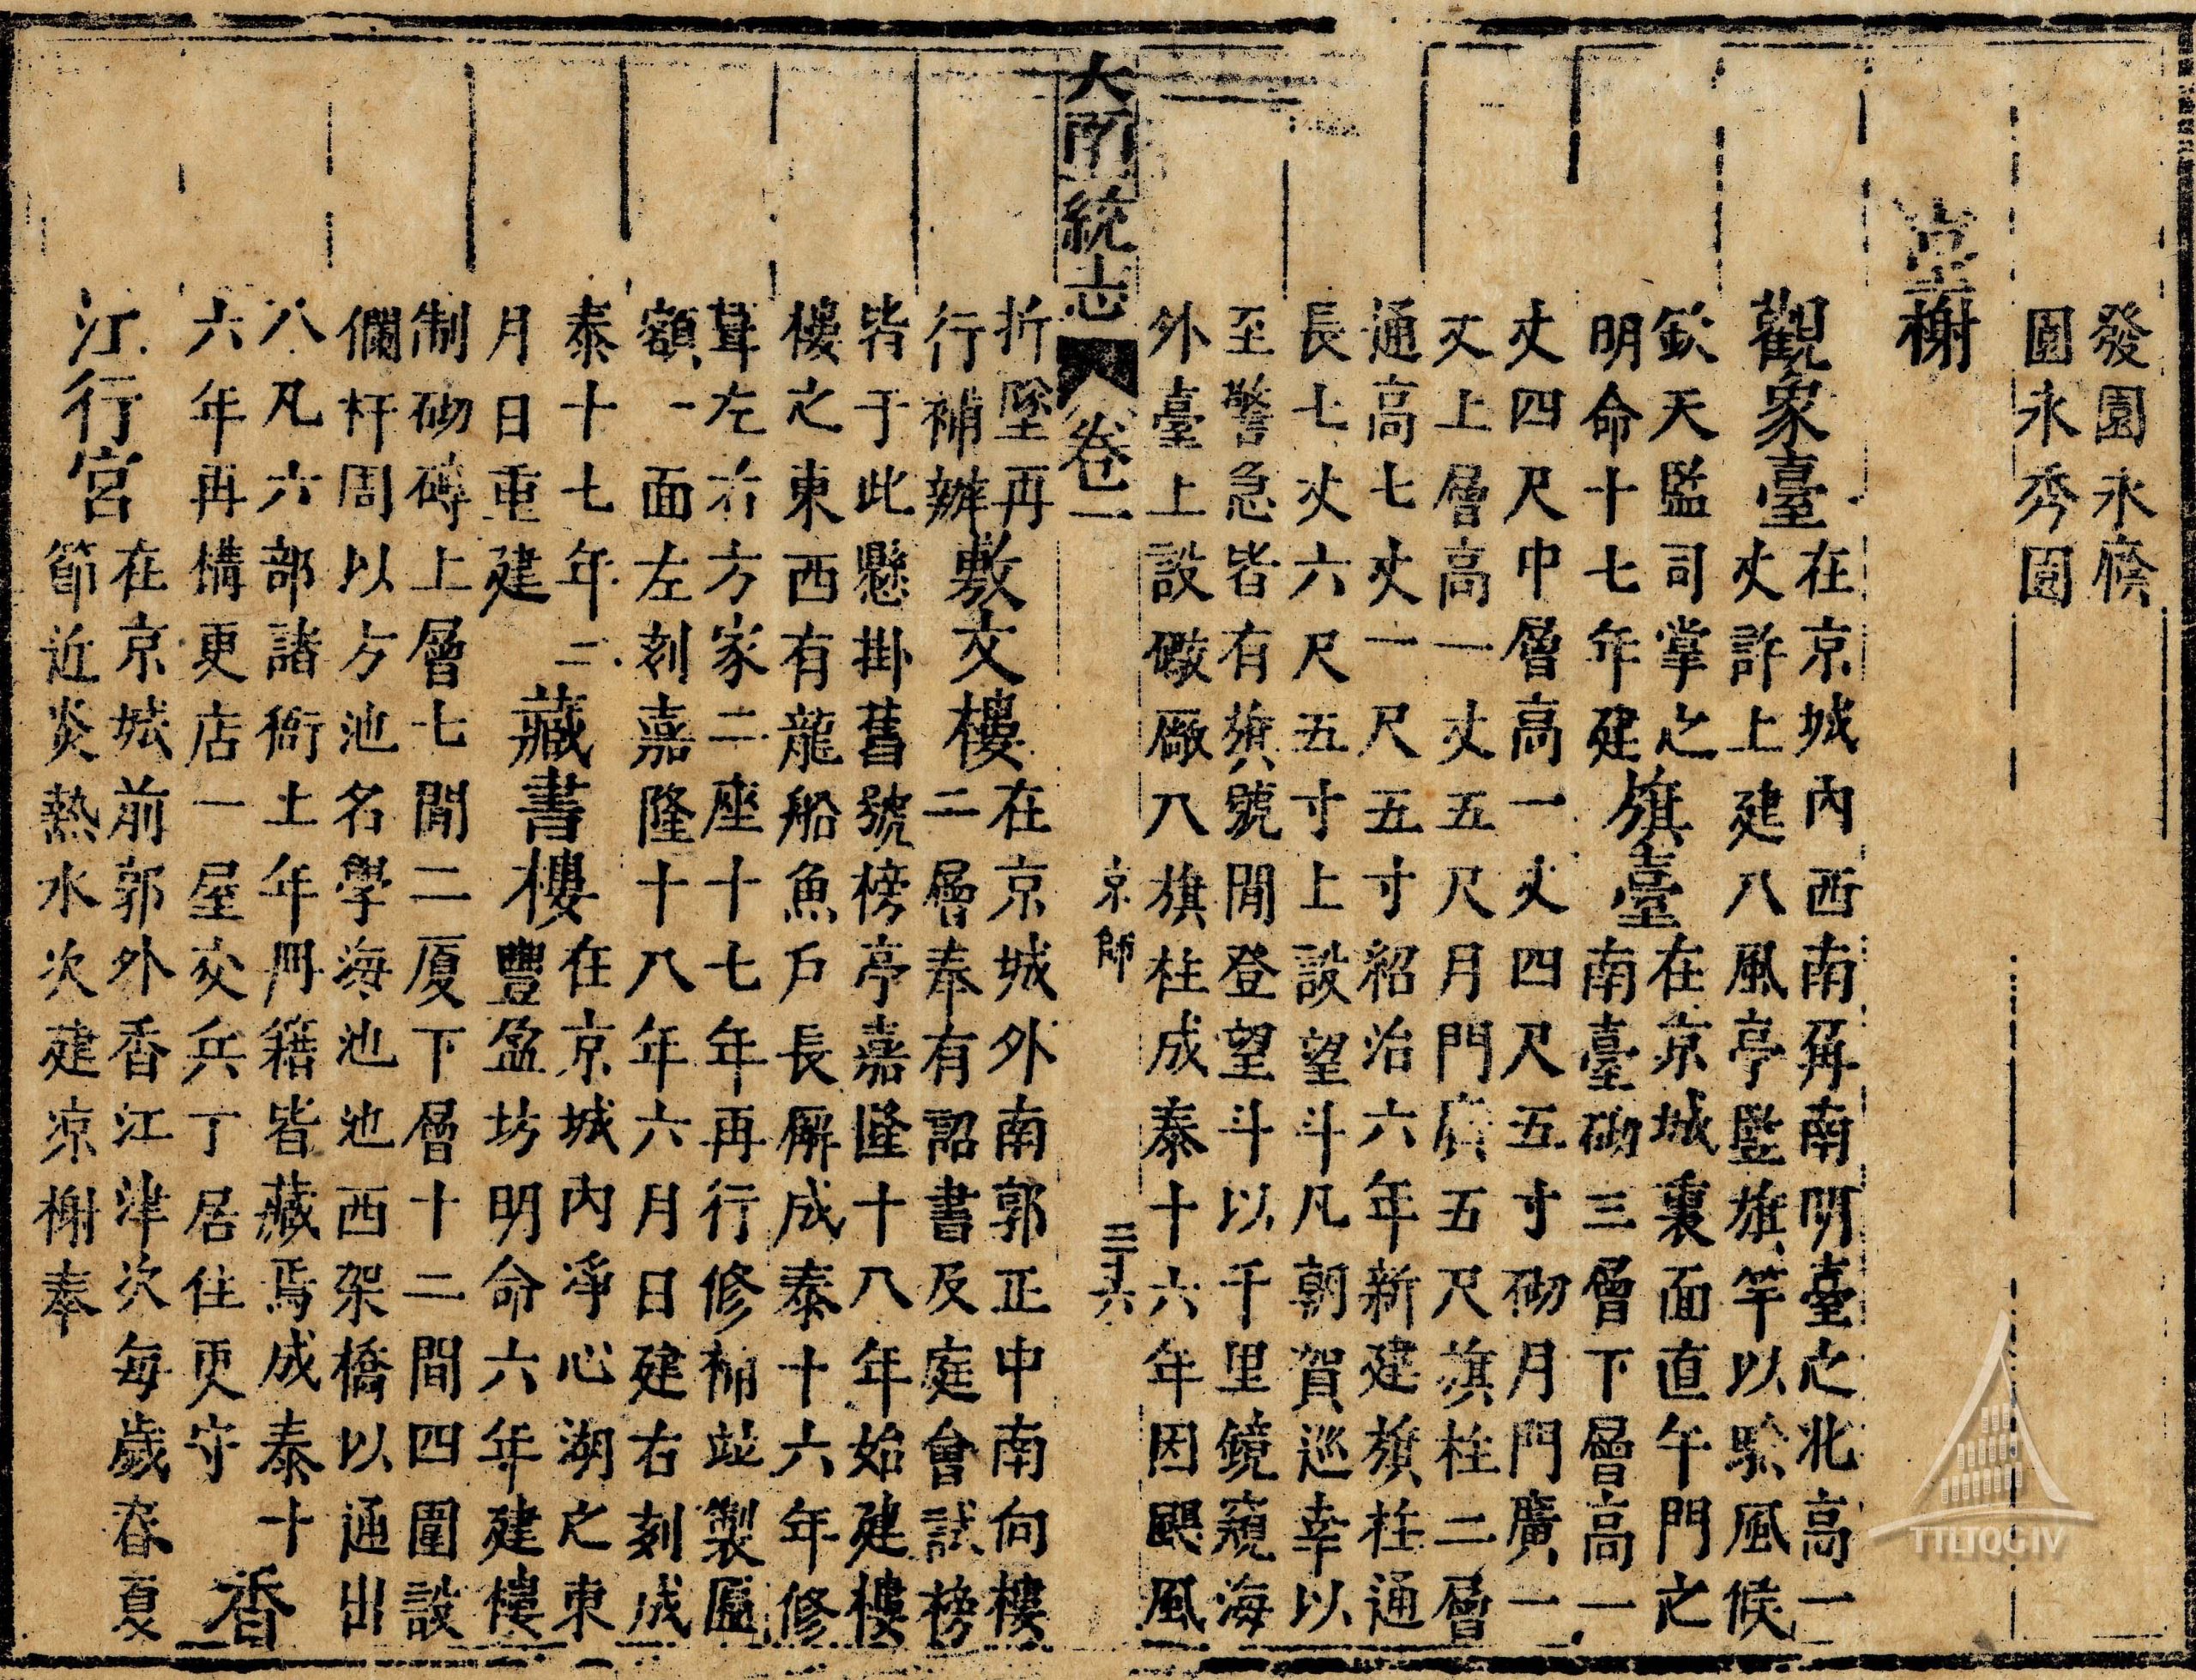 發園永
園永秀園
臺榭
觀象臺
在京城內西南角南明臺之北高一
丈許上建八風亭豎雄竿以驗風候
欽天監司掌之
明命十七年建
旗臺
在京城裏面直午門之
南臺砌三層下層高一
丈四尺中層高一丈四尺五寸砌月門廣一
丈上層高一丈五尺月門廣五尺旗柱二層
通高七丈一尺五寸紹治六年新建旗柱通
長七丈六尺五寸上設望斗凡朝賀巡幸以
至警急皆有旗號間登望斗以千里鏡窺海
外臺上設礮廠八旗柱成泰十六年因颶風
大南一統志 卷一 京師 三十六
折墜再
行補辦
敷文樓
在京城外南郭正中南向樓
二層奉有詔書及庭會試榜
皆于此懸掛舊號榜亭嘉隆十八年始建樓
樓之東西有龍船魚戶長廨成泰十六年修
葺左右方家二座十七年再行修補並製匾
額一面左刻嘉隆十八年六月日建右刻成
泰十七年二
月日重建
藏書樓
在京城內淨心湖之東
豐盈坊明命六年建樓
制砌磚上層七間二廈下層十二間四圍設
欄杆周以方池名學海池池西架橋以通出
入凡六部諸衙土年冊籍皆藏焉成泰十
六年再構更店一屋交兵丁居住更守
香
江行宮
在京城前郭外香江津次每歲春夏
節近炎熱水次建涼榭奉
TTLTQG IV